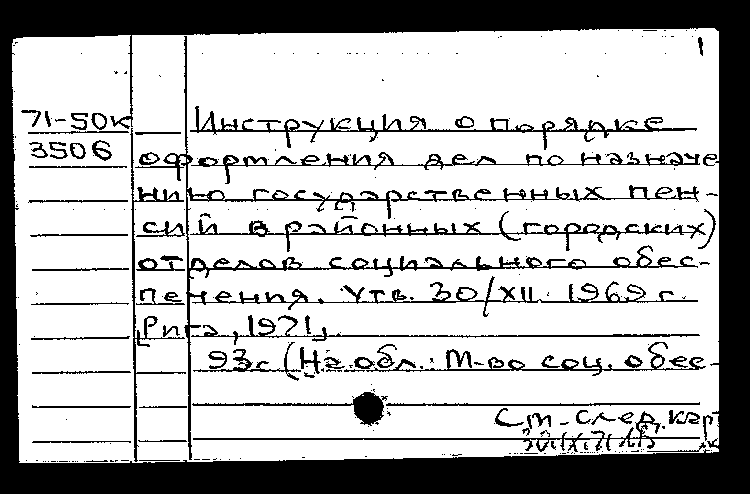 1
71-50к Инструкция о порядке
3506 оформления дел по назначе
нию государственных пен-
сий в районных (городских)
отделов социального обес-
печения. Утв. 30/XII. 1969 г.
[Рига, 1971].
93с (На обл.: М-во соц. обес-
См. след. карт
30.IX.71